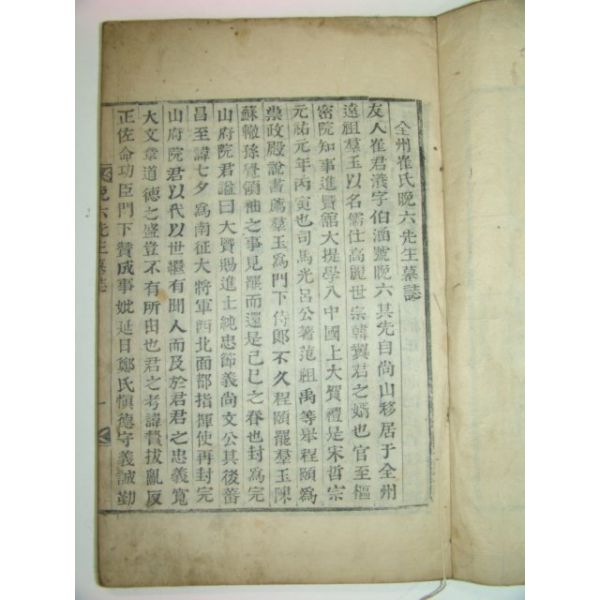 全州崔氏晚六先生墓誌
友人崔君瀁字伯涵號晚六其先自尚山移居于全州
遠祖羣玉以名儒仕高麗世宗韓翼君之婿也官至樞
密院知事進賢館大提學入中國上大賀禮是宋哲宗
元祐元年丙寅也司馬光呂公著范祖禹等舉程頤爲
崇政殿說書薦羣玉爲門下侍郎不久程頤罷羣玉陳
蘇轍孫覺領袖之事見罷而還是己巳之春也封爲完
山府院君謚曰大賢賜進士純忠節義尚文公其後善
昌至諱七夕爲南征大將軍西北面部指揮使再封完
山府院君以代以世繼有聞人而及於君君之忠義寬
大文章道德之盛豈不有所由也君之考諱贇拔亂反
正佐命功臣門下贊成事妣延日鄭氏愼德守義誠勤
晚六先生墓誌
一